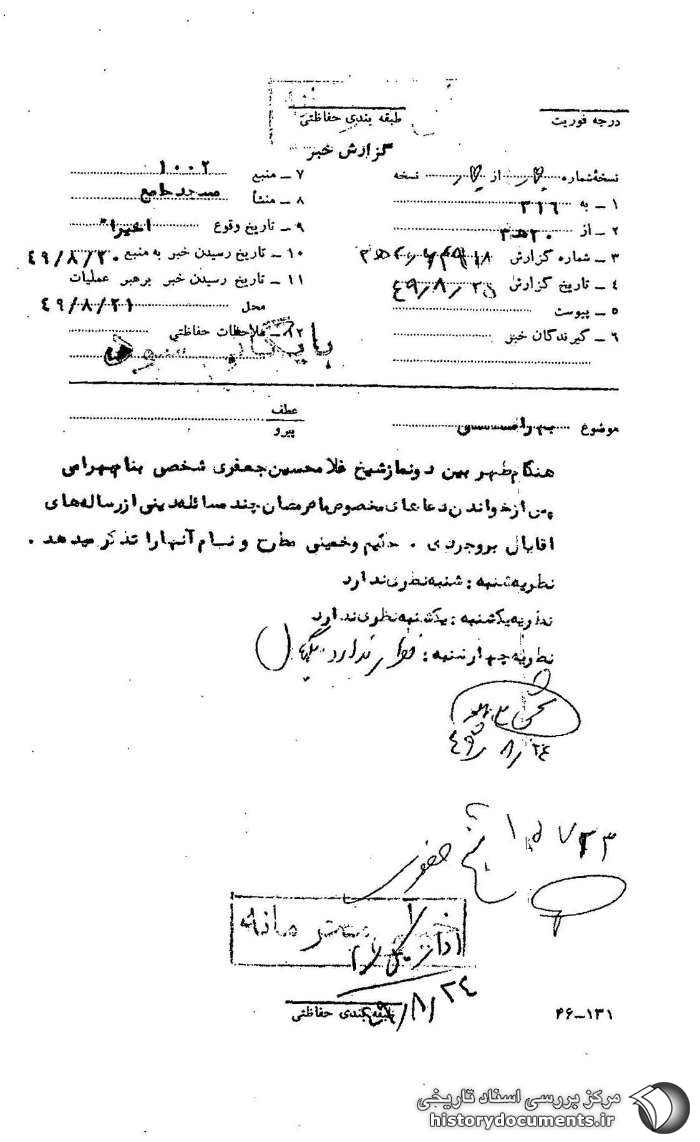 درجه فوریت
طبقه بندی حفاظتی
گزارش خبر
نسخهٔ شماره از نسخه
۱ ــ به ۳۱۶
۲ ــ از ۲۰ ه ۳
۳ ــ شماره گزارش
۴ ــ تاریخ گزارش
۵ ــ پیوست
۶ ــ گیرندگان خبر
۷ ــ منبع ۱۰۰۲
۸ ــ منشأ مسجد جامع
۹ ــ تاریخ وقوع اخیراً
۱۰ ــ تاریخ رسیدن خبر به منبع ۴۹/۸/۲۰
۱۱ ــ تاریخ رسیدن خبر برهبر عملیات
محل ۴۹/۸/۲۱
۱۲ ــ ملاحظات حفاظتی
عطف
پیرو
موضوع بهرامی
هنگام ظهر بین دو نماز شیخ غلامحسین جعفری شخصی بنام بهرامی
پس از خواندن دعاهای مخصوص ماه رمضان چند مسائله دینی از رساله های
اقایان بروجردی . حکیم و خمینی مطرح و نسام آنها را تذکر میدهد .
نظریه شنبه : شنبه نظری ندارد
نظریه یکشنبه : یکشنبه نظری ندارد
نظریه چهارشنبه : نظری ندارد
۴۹/۸/۲۴
شیخ جعفری
خیلی محرمانه
۴۹/۸/۲۴
طبقه بندی حفاظتی
۴۶ــ۱۳۱
مرکز بررسی اسناد تاریخی
historydocuments.ir